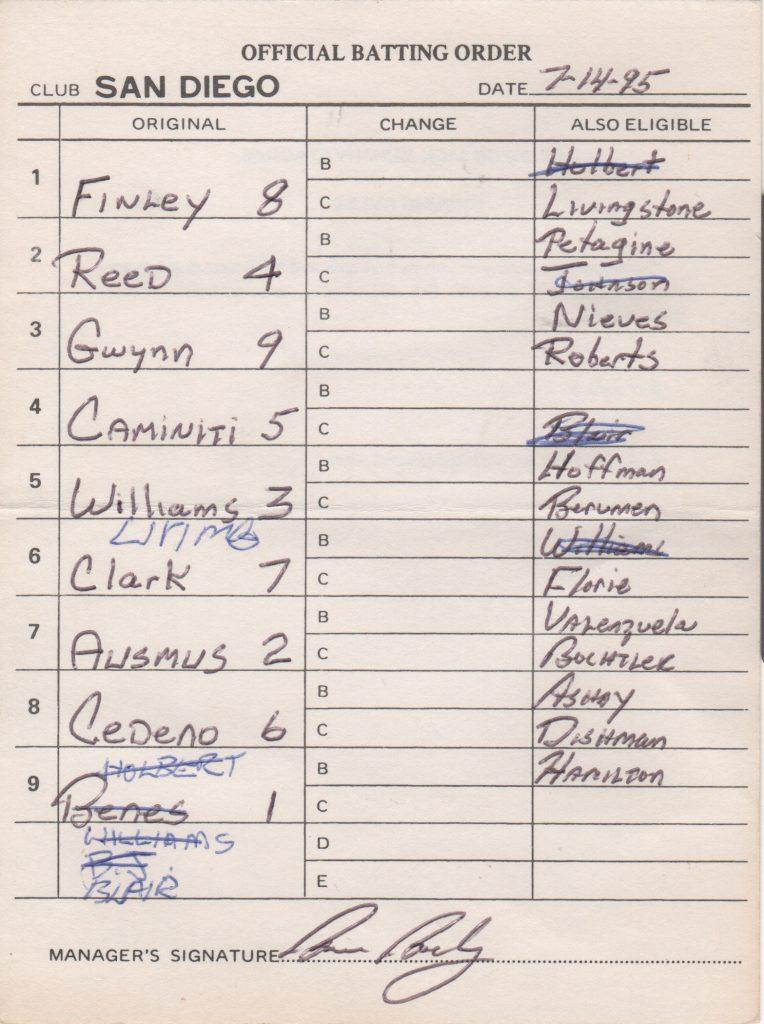 OFFICIAL BATTING ORDER
CLUB SAN DIEGO DATE 7-14-95
ORIGINAL CHANGE ALSO ELIGIBLE
1 Finley 8 B Holbert
C Livingstone
2 Reed 4 B Petagine
C Johnson
3 Gwynn 9 B Nieves
C Roberts
4 Caminiti 5 B
C Blair
5 Williams 3 B Hoffman
C Berumen
6 Clark 7 B Williams
C Florie
7 Ausmus 2 B Valenzuela
C Bochtler
8 Cedeno 6 B Ashby
C Dishman
HOLBERT
9 Benes 1 B Hamilton
C
WILLIAMS D
B.J.
BLAIR E
MANAGER'S SIGNATURE